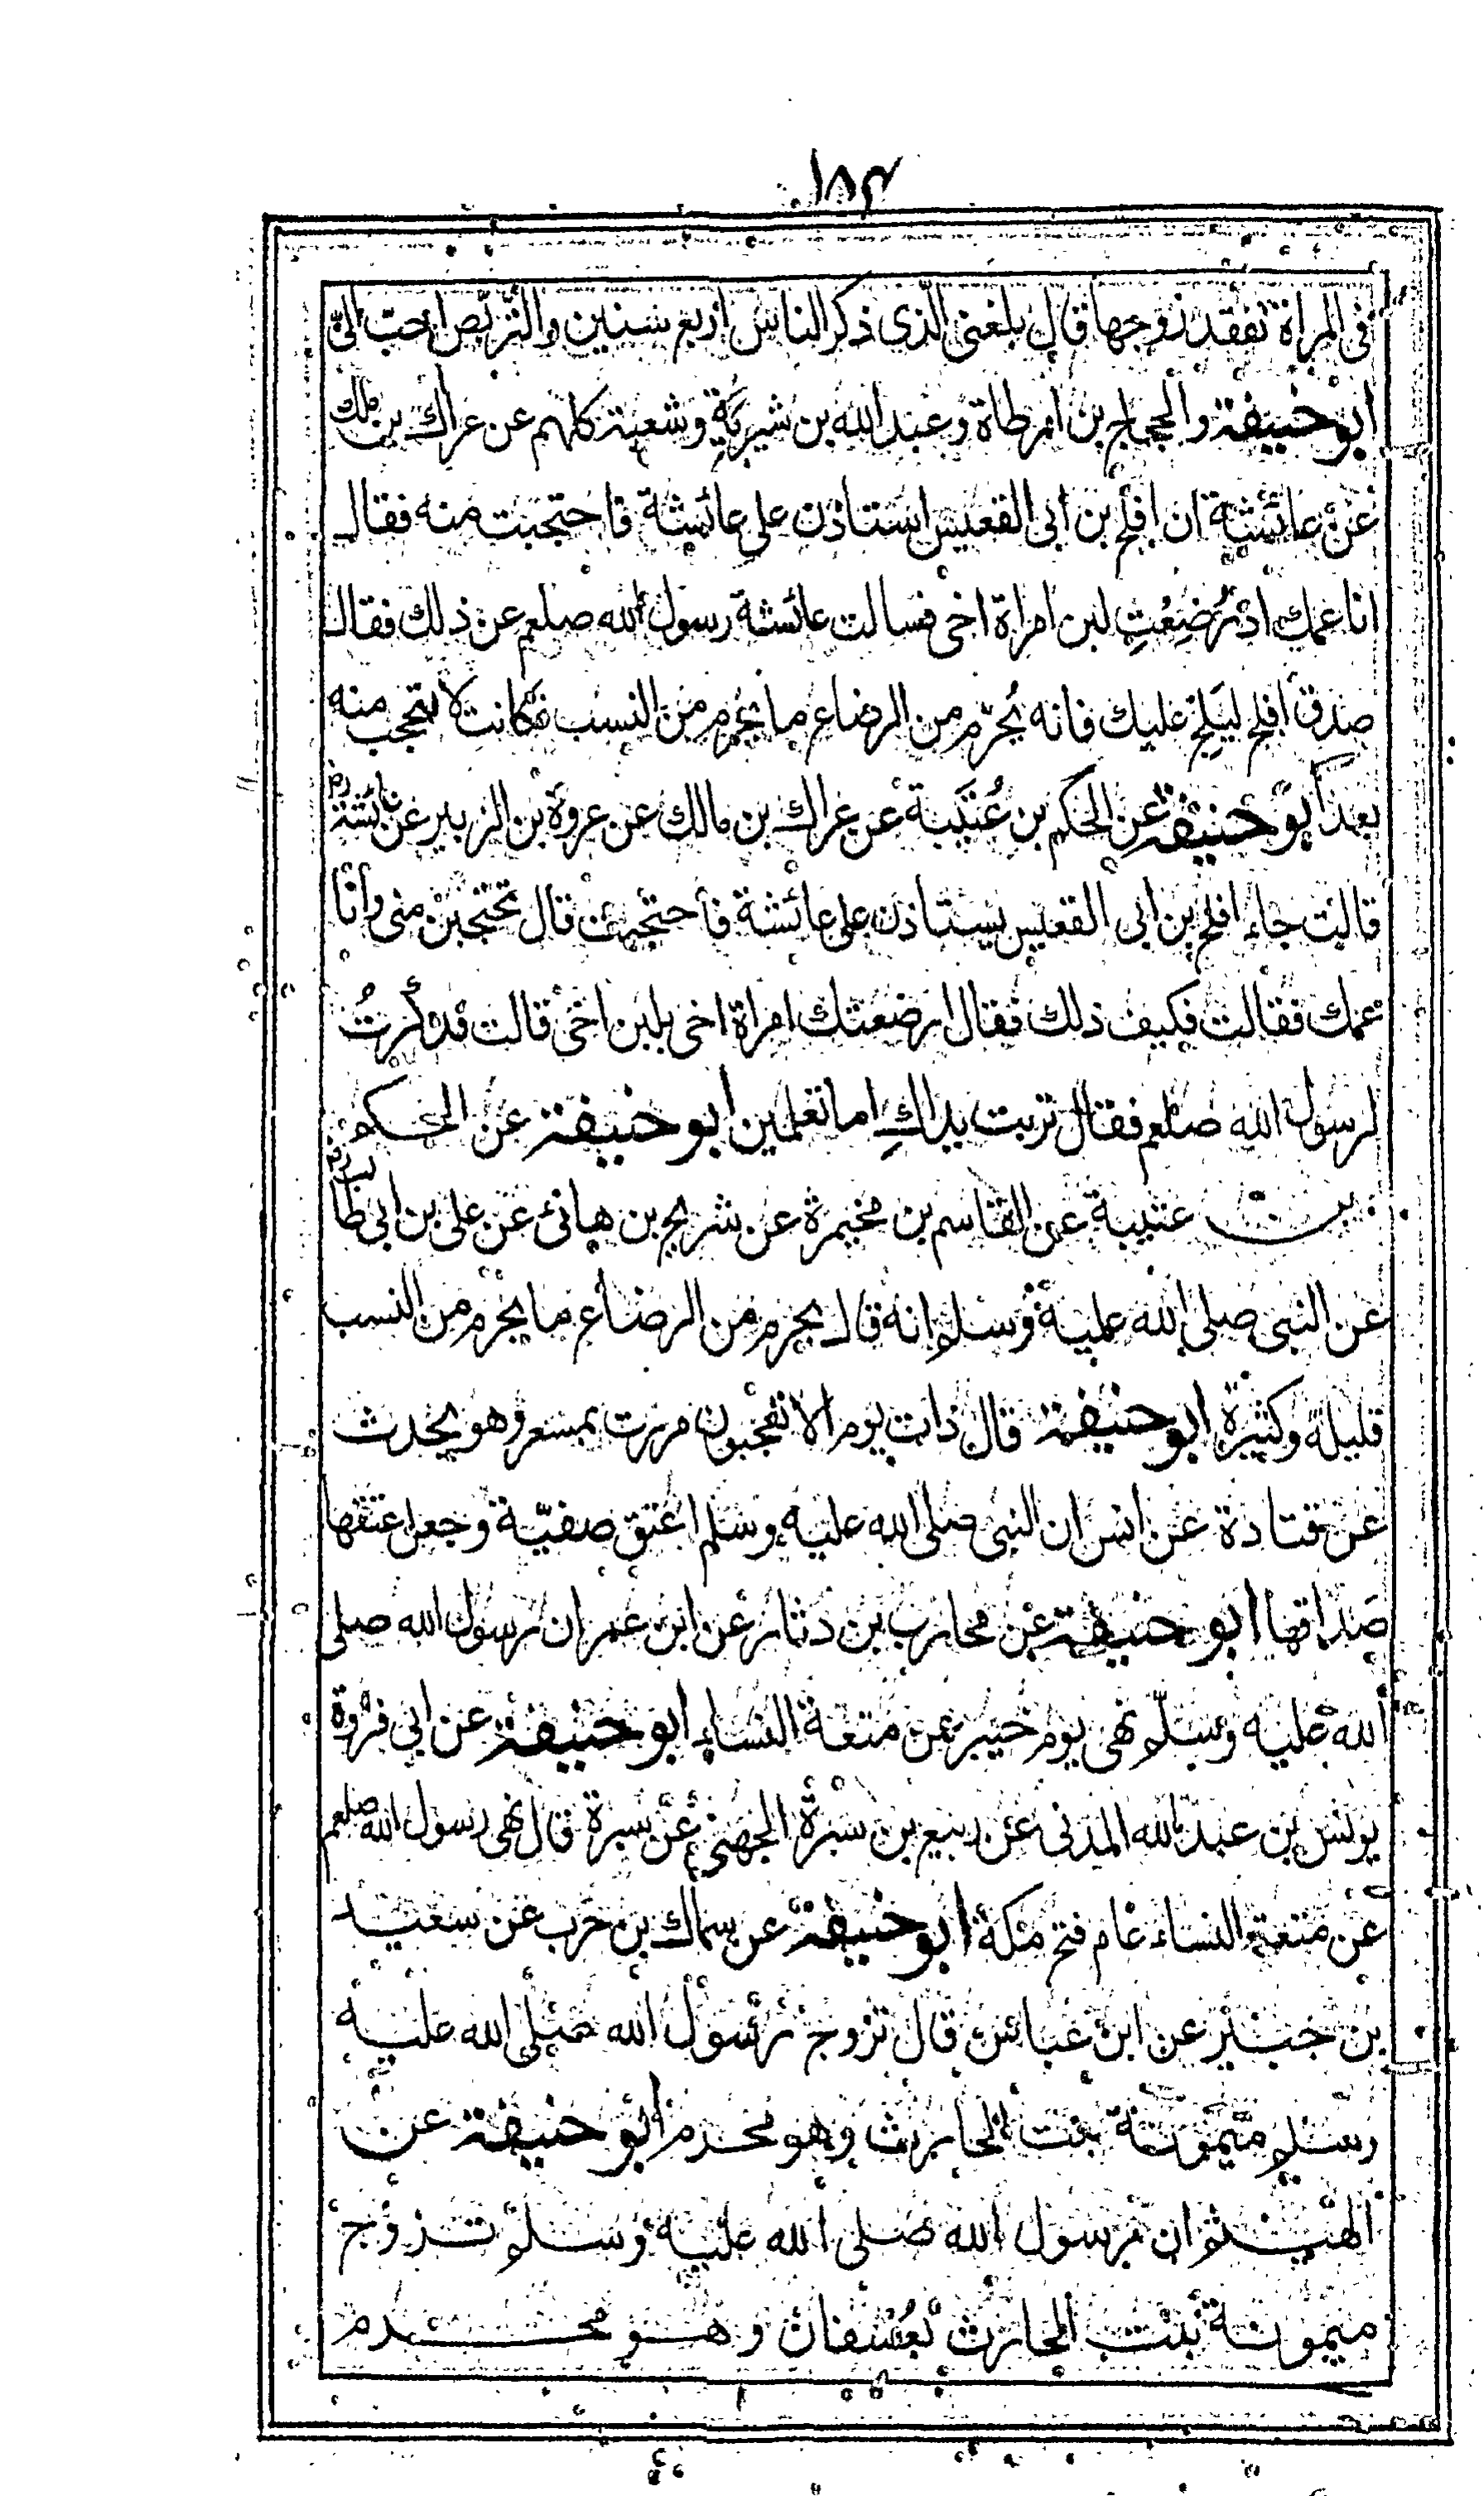 ١٥٤
فى المراة تفقد زوجها قال بلغنى الّذى ذكر الناس اربع سنين والتّربّص احبّ الىّ
ابو حنيفة والحجاج بن ارطاة وعبد الله بن شبرمة وشعبة كلهم عن عراك بن ملك
عن عائشة ان افلح بن ابى القعيس استاذن على عائشة فاحتجبت منه فقال
انا عمك ارضعت لبن امراة اخى فسالت عائشة رسول الله صلعم عن ذلك فقال
صدق افلح ليلج عليك فانه يحرّم من الرضاع ما يحرم من النسب فكانت لا تحتجب منه
بعد ابو حنيفة عن الحكم بن عُتَيبة عن عراك بن مالك عن عروة بن الزبير عن عائشة رض
قالت جاء افلح بن ابى القعيس يستاذن على عائشة فاحتجبت قال تحتجبين منى وانا
عمك فقالت فكيف ذلك فقال ارضعتك امراة اخى بلبن اخى قالت فذكرتُ
لرسول الله صلعم فقال تربت يداكِ اما تعلمين ابو حنيفة عن الحكم
بن عتيبة عن القاسم بن مخيمرة عن شريح بن هانئ عن على بن ابى طالب رض
عن النبى صلى الله عليه وسلم انه قال يحرم من الرضاع ما يحرم من النسب
قليله وكثيرة ابو حنيفة قال ذات يوم الا تعجبون مررت بمسعر وهو يحدث
عن قتادة عن انس ان النبى صلى الله عليه وسلم اعتق صفيّة وجعل عتقها
صداقها ابو حنيفة عن محارب بن دثار عن ابن عمر ان رسول الله صلى
الله عليه وسلّم نهى يوم خيبر عن متعة النساء ابو حنيفة عن ابى فروة
يونس بن عبد الله المدنى عن ربيع بن سبرة الجهنى عن سبرة قال نهى رسول الله صلعم
عن متعة النساء عام فتح مكة ابو حنيفة عن سماك بن حرب عن سعيد
بن جبير عن ابن عباس قال تزوج رسول الله صلى الله عليه
وسلم ميمونة بنت الحارث وهو محرم ابو حنيفة عن
الهيثم ان رسول الله صلى الله عليه وسلم تزوج
ميمونة بنت الحارث بعُسْفان وهو محرم